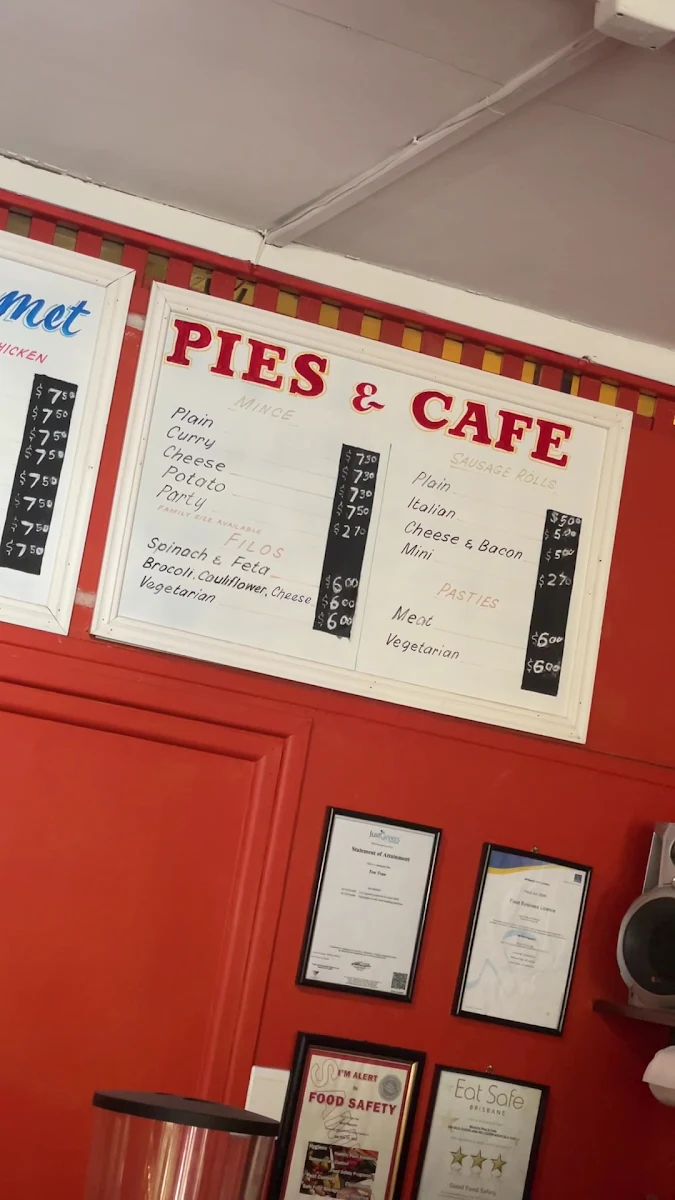 met
HICKEN
$7 50
$7 50
$7 50
$7 50
$7 50
$7 50
$7 50
$7 50
PIES & CAFE
MINCE
Plain $7 50
Curry $7 50
Cheese $7 50
Potato $7 50
Party $2 70
FAMILY SIZE AVAILABLE
FILOS
Spinach & Feta $6 00
Brocoli, Cauliflower, Cheese $6 00
Vegetarian $6 00
SAUSAGE ROLLS
Plain $5 00
Italian $5 00
Cheese & Bacon $5 00
Mini $2 70
PASTIES
Meat $6 00
Vegetarian $6 00
Statement of Attainment
Food Business Licence
I'M ALERT
FOOD SAFETY
Eat Safe
BRISBANE
Good Food Safety